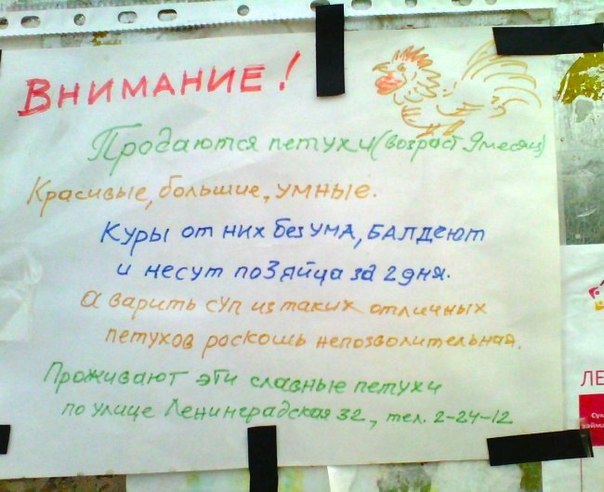 Внимание!
Продаются петухи (возраст 9 месяц)
Красивые, большие, умные.
Куры от них без ума, балдеют
и несут по 3 яйца за 2 дня.
А варить суп из таких отличных
петухов роскошь непозволительная.
Проживают эти славные петухи
по улице Ленинградская 32, тел. 2-24-12
ЛЕ